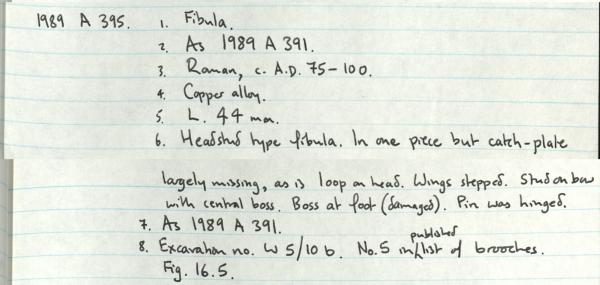 1989 A 395. 1. Fibula.
2. As 1989 A 391.
3. Roman, c. A.D. 75-100.
4. Copper alloy.
5. L. 44 mm.
6. Headstud type fibula. In one piece but catch-plate
largely missing, as is loop on head. Wings stepped. Stud on bow
with central boss. Boss at foot (damaged). Pin was hinged.
7. As 1989 A 391.
8. Excavation no. W 5/10 b. No. 5 in published list of brooches.
Fig. 16.5.